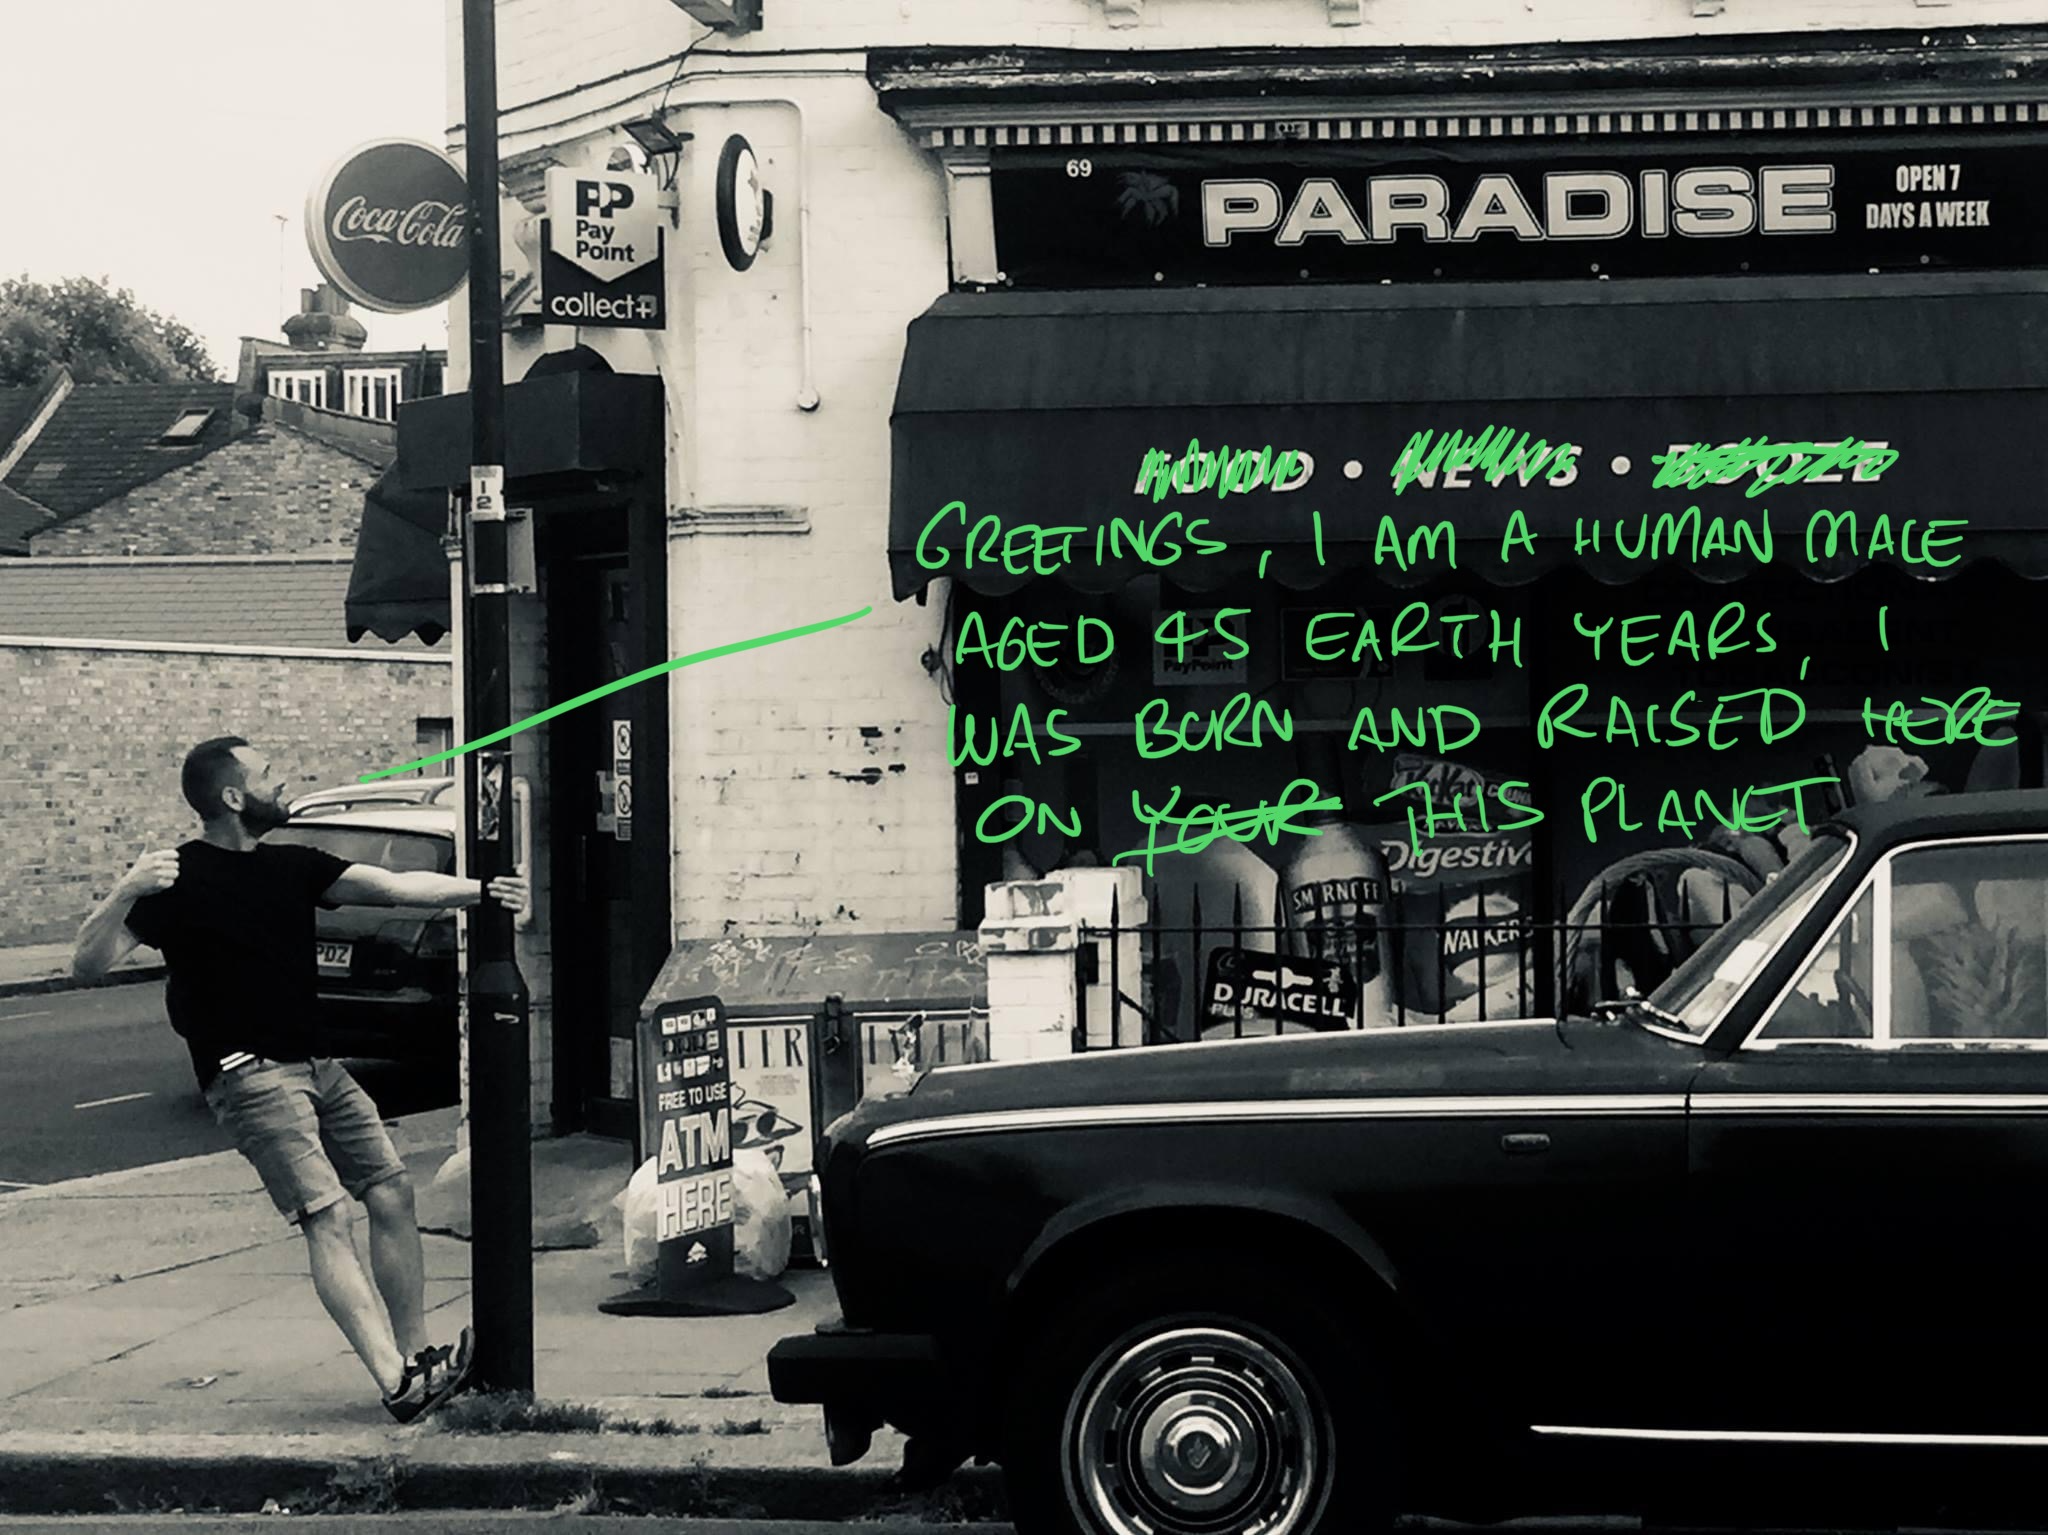 Coca-Cola
PP
Pay
Point
collect+
69
PARADISE
OPEN 7
DAYS A WEEK
GREETINGS, I AM A HUMAN MALE
AGED 45 EARTH YEARS, I
WAS BORN AND RAISED HERE
ON YOUR THIS PLANET
1
2
PayPoint
Digestive
SMIRNOFF
WALKERS
DURACELL
PLUS
PDZ
FREE TO USE
ATM
HERE